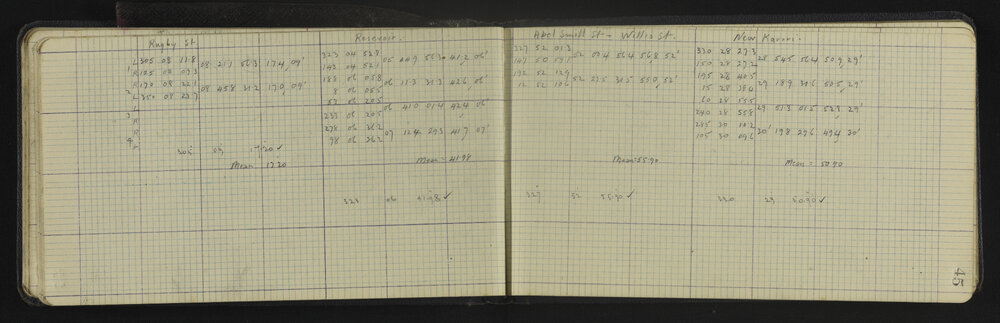 Rugby St.
L 305 08 11.8
1 R 125 08 07.3
08 211 563 174 09'
R 170 08 22.1
2 L 350 08 23.7
08 458 312 170 09'
L
3 R
R
4 L
305 09 17.20 ✓
Mean 17.20
Reservoir.
323 04 52.7
143 04 52.1
188 06 05.8
8 06 05.5
53 06 20.5
06 410 014 424 06'
233 06 20.5
278 06 36.2
98 06 36.2
07 124 293 417 07'
Mean = 41.98
323 06 41.98 ✓
Abel Smith St - Willis St.
327 52 01.3
147 50 59.1
52 004 564 568 52'
192 52 12.9
12 52 10.6
52 235 315 550 52'
Mean = 55.90
327 52 55.90 ✓
Near Karori.
330 28 27.3
150 28 27.2
28 545 564 509 29'
195 28 40.5
15 28 38.4
29 189 316 505 29'
60 28 55.5
240 28 55.8
29 513 015 528 29'
285 30 10.2
105 30 09.6
30' 198 296 494 30'
Mean = 50.90
330 29 50.90 ✓
45